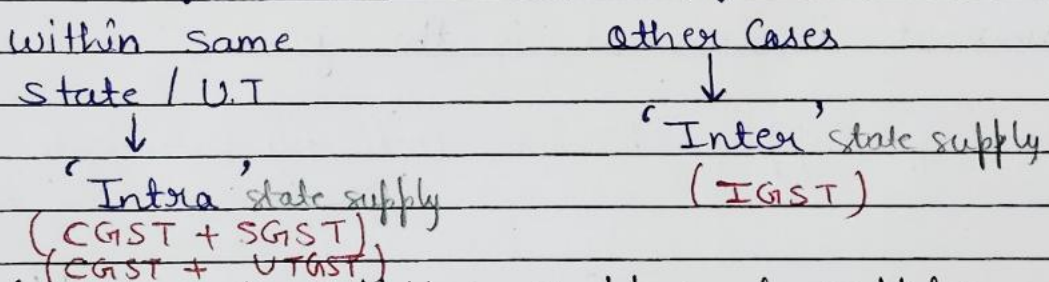 Within same
state / U.T
↓
'Intra' state supply
(CGST + SGST)
(CGST + UTGST)
Other Cases
↓
'Inter' state supply
(IGST)